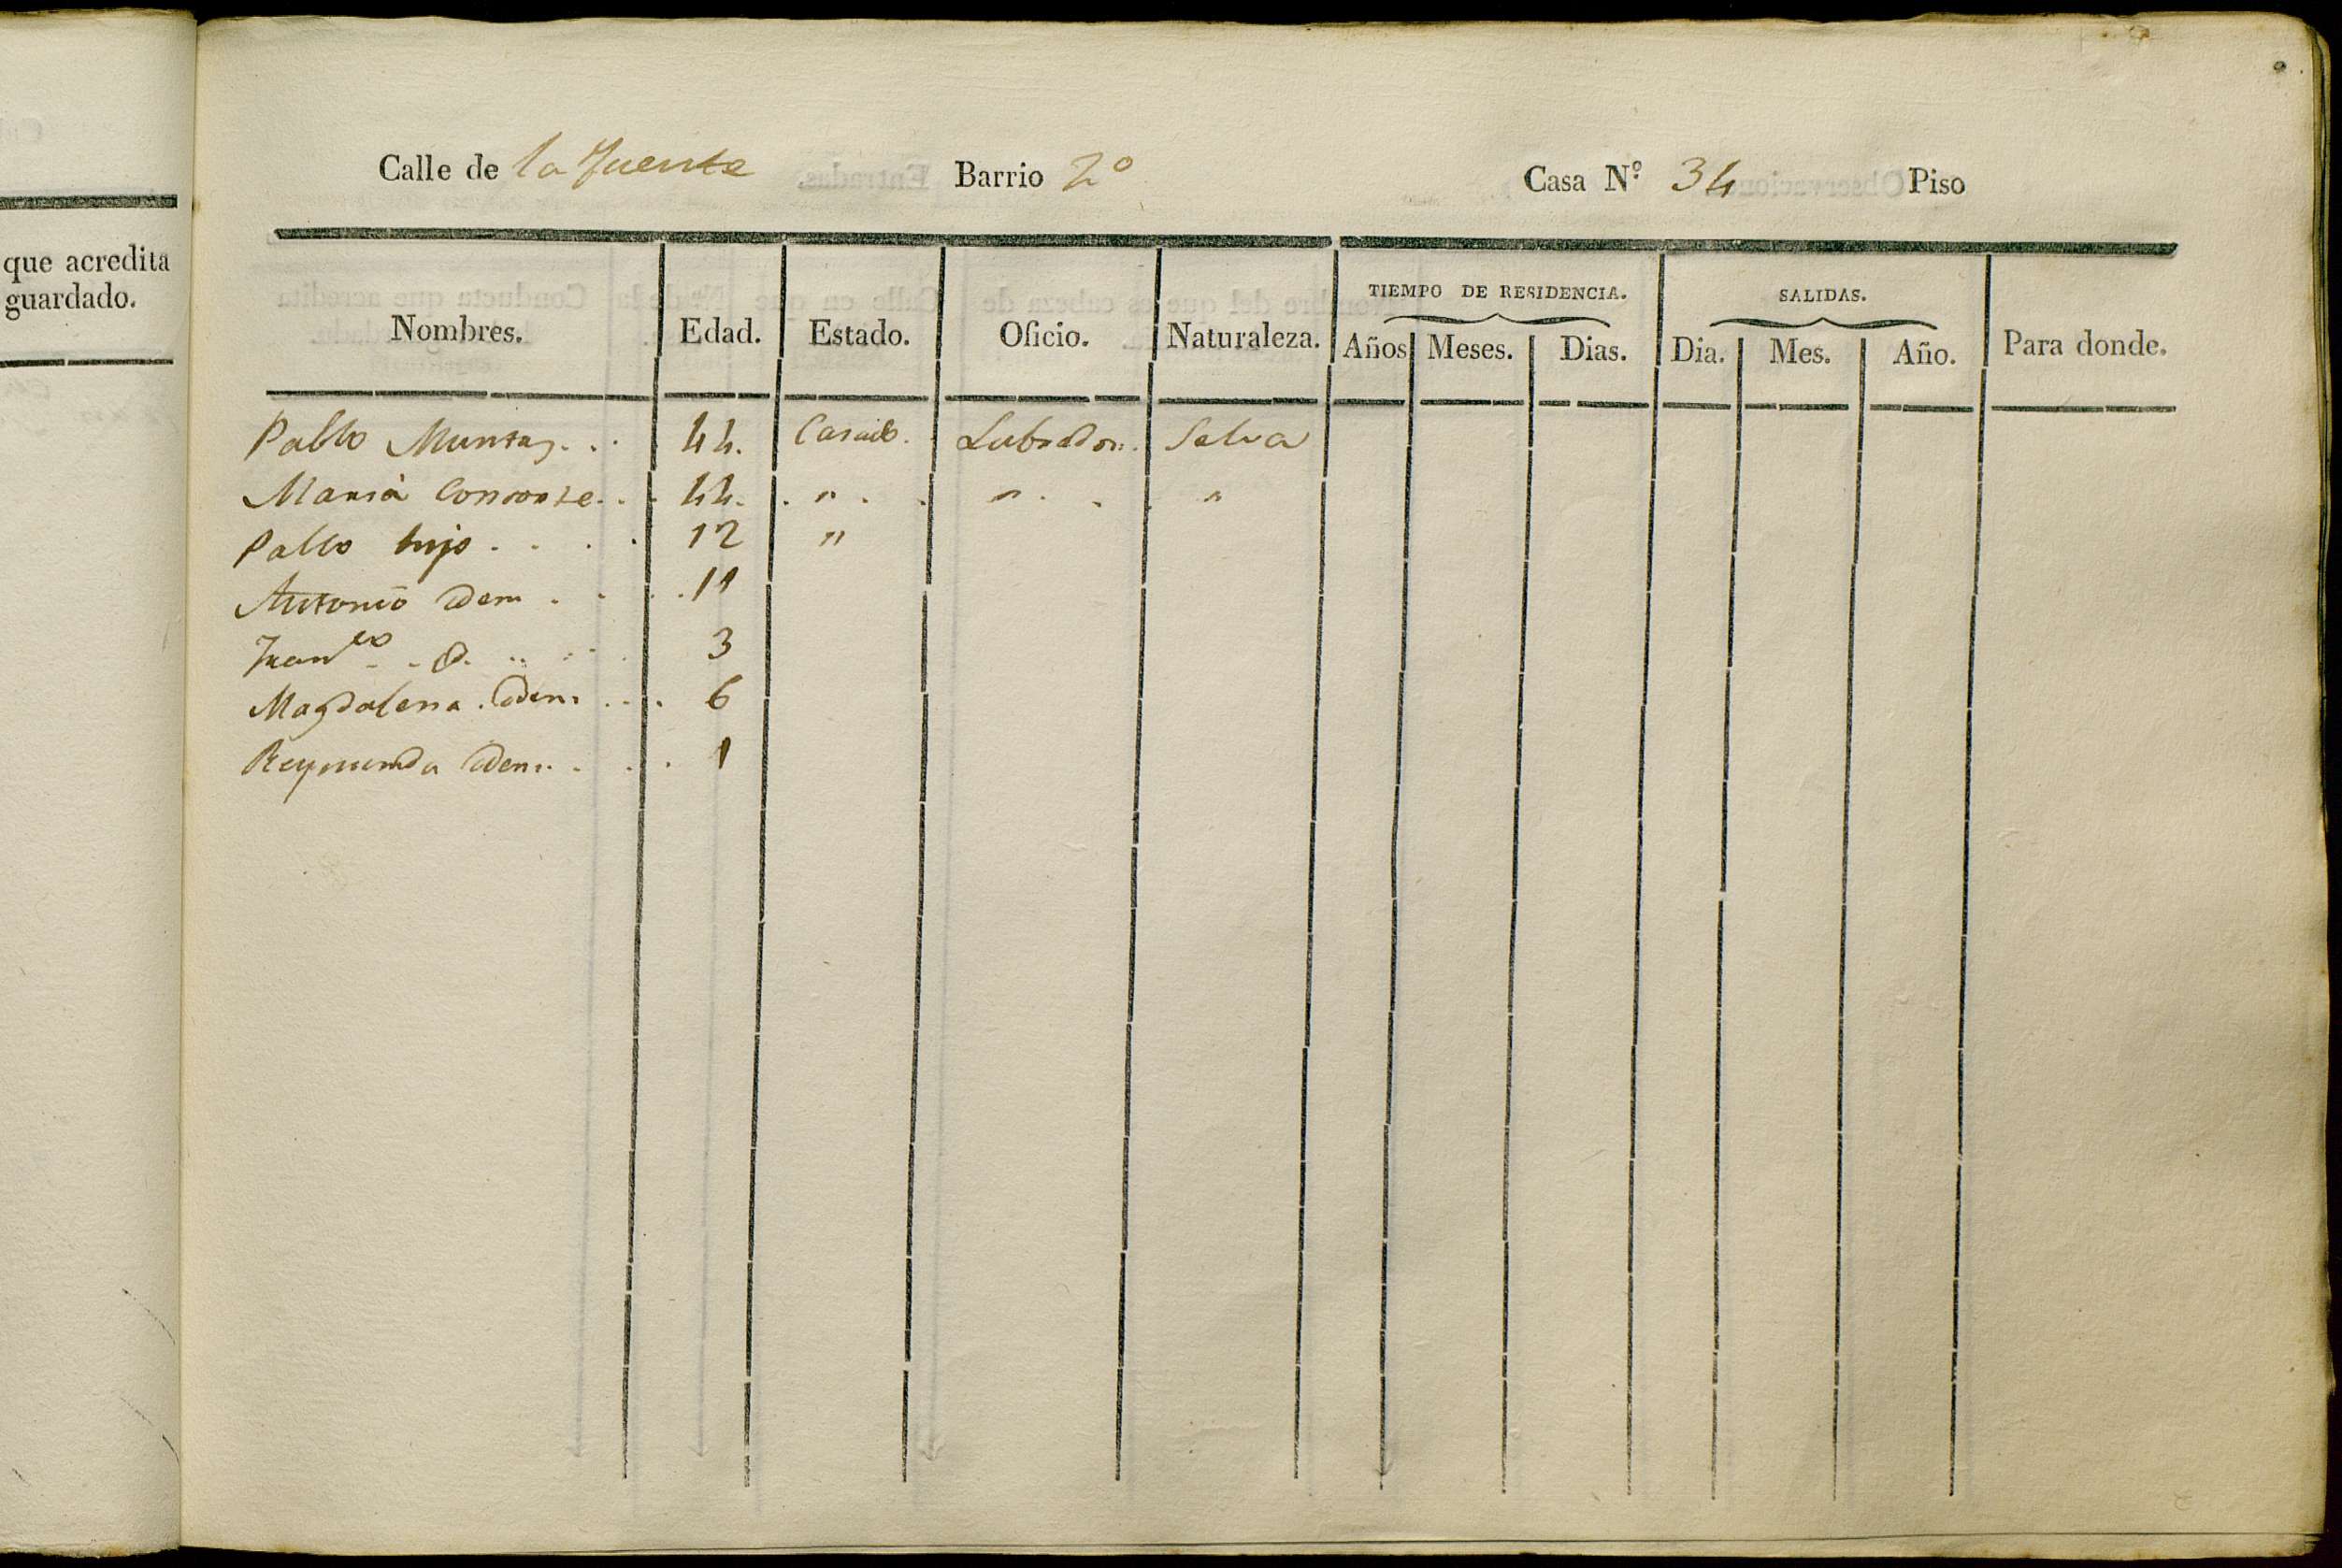 que acredita
guardado.
Calle de la Fuente Barrio 2º Casa Nº 34 Piso
TIEMPO DE RESIDENCIA. SALIDAS.
Nombres. Edad. Estado. Oficio. Naturaleza. Años Meses. Dias. Dia. Mes. Año. Para donde.
Pablo Muntaz . . 44. Casado. Labrador. Selva
Maria Consorte . . 44. . " . . " . . "
Pablo hijo . . . . 12 "
Antonio idem . . . . 11
Franco . . d. . . . 3
Magdalena . idem . . . 6
Reymunda idem . . . . 1